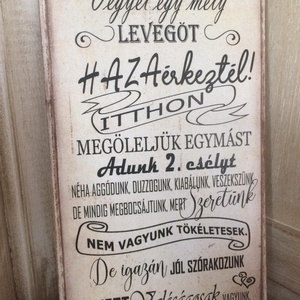 Végyél egy mély
LEVEGŐT
HAZAérkeztél!
ITTHON
MEGÖLELJÜK EGYMÁST
Adunk 2. csélyt
NÉHA AGGÓDUNK, DUZZOGUNK, KIABÁLUNK, VESZEKSZÜNK
DE MINDIG MEGBOCSÁJTUNK, MERT Szeretünk
NEM VAGYUNK TÖKÉLETESEK.
De igazán JÓL SZÓRAKOZUNK